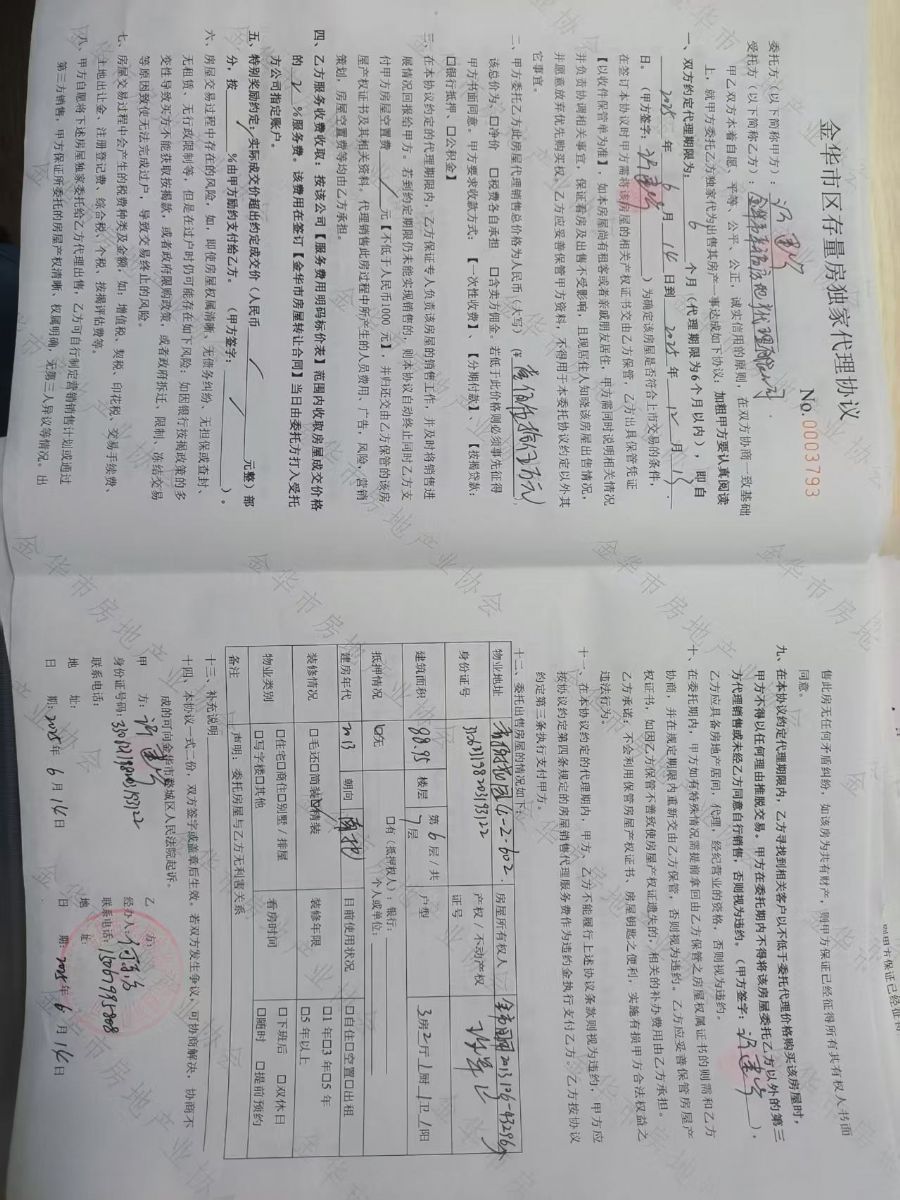 金华市区存量房独家代理协议
No. 0003793
委托方（以下简称甲方）：
受托方（以下简称乙方）：
甲乙双方本着自愿、平等、公平、公正，诚实信用的原则，在双方协商一致基础
上，就甲方委托乙方独家代为出售其房产一事达成如下协议：加粗甲方要认真阅读
一、双方约定代理期限为： 6 个月（代理期限为6个月以内），即自
2025 年 6 月 14 日到 2025 年 12 月 13
日。（甲方签字： ）为确定该房屋是否符合上市交易的条件，
在签订本协议时甲方需将该房屋的相关产权证书交由乙方保管，乙方出具保管凭证
【以收件保管单为准】，如本房屋尚有租客或者亲戚朋友居住，甲方需同时说明相关情况
并负责协调相关事宜，保证看房及出售不受影响，且现居住人知晓该房屋出售情况，
并愿意放弃优先购买权。乙方应妥善保管甲方资料，不得用于本委托协议约定以外其
它事宜。
二、甲方委托乙方此房屋代理销售总价格为人民币（大写）
该总价为：口净价 口税费各自承担 口含卖方佣金。若低于此价格则必须事先征得
甲方书面同意。甲方要求收款方式：【一次性收费】、【分期付款】、【按揭贷款：
口银行抵押、口公积金】
三、在本协议约定的代理期限内，乙方保证专人负责该房屋的销售工作，并及时将销售进
展情况回报给甲方。若到约定期限仍未能实现销售的，则本协议自动终止同时乙方支
付甲方房屋空置费 / 元【不低于人民币1000 元】，并归还交由乙方保管的该房
屋产权证书及其相关资料，代理销售此房过程中所产生的人员费用、广告，风险，营销
策划，房屋空置费等均由乙方承担。
四、乙方服务收费收取：按该公司【服务费用明码标价表】范围内收取房屋成交价格
的 2 %服务费。该费用在签订【金华市房屋转让合同】当日由委托方打入受托
方公司指定账户。
五、特别奖励约定：实际成交价超出约定成交价（人民币 / 元整）部
分，按 / %由甲方励约支付给乙方。（甲方签字： ）。
六、房屋交易过程中存在的风险，如，即使房屋权属清晰，无债务纠纷、无担保或查封、
无租赁，无行政限制等，但是在过户时仍可能存在如下风险：如因银行按揭政策的多
变性导致买方不能获取按揭款，或者政府限购政策，或者政府拆迁、限制、冻结交易
等原因致使无法完成过户，导致交易终止的风险。
七、房屋交易过程中会产生的税费种类及金额，如：增值税、契税、印花税、交易手续费、
土地出让金、注册登记费、综合税、个税、按揭评估费等。
八、甲方自愿将下述房屋独家委托给乙方代理出售，乙方可自行制定营销销售计划或通过
第三方销售。甲方保证所委托的房屋产权清晰、权属明确，无第三人异议等情况。出
售此房无任何矛盾纠纷，如该房为共有财产，则甲方保证已经征得所有共有权人书面
同意。
九、在本协议约定代理期限内，乙方寻找到相关客户以不低于委托代理价格购买该房屋时，
甲方不得以任何理由推脱交易。甲方在委托期内不得将该房屋委托乙方以外的第三
方代理销售或未经乙方同意自行销售，否则视为违约。（甲方签字： ）。
乙方应具备房地产居间，代理，经纪营业的资格，否则视为违约。
十、在委托期内，甲方如有特殊情况需提前拿回由乙方保管之房屋权属证书的则需和乙方
协商，并在规定期限内重新交由乙方保管，否则视为违约。乙方应妥善保管房屋产
权证书，如因乙方保管不善致使房屋产权证遗失的，相关的补办费用由乙方承担。
乙方承诺：不会利用保管房屋产权证书、房屋钥匙之便利，实施有损甲方合法权益之
违法行为。
十一、在本协议约定的代理期内，甲方、乙方不能履行上述协议条款则视为违约，甲方应
按协议约定第四条规定的房屋销售代理服务费作为违约金执行支付乙方。乙方按协议
约定第三条执行支付甲方。
十二、委托出售房屋的情况如下：
物业地址 11-2-602 房屋所有权人
身份证号 产权/不动产权证号
建筑面积 88.95 楼层 第 6 层/共 7 层 户型 3房2厅1厨1卫1阳
抵押情况 口无 口有（抵押权人）：银行： 个人或单位：
建房年代 2013 朝向 南北 目前使用状况 口自住口空置口出租
装修情况 口毛还口简装口精装 装修年限 口1年口3年口5年 口5年以上
物业类别 口住宅口商住口别墅/排屋 口写字楼口其他 看房时间 口下班后 口双休日 口随时 口提前预约
备注 声明：委托房屋与乙方无利害关系
十三、补充说明
十四、本协议一式二份，双方签字或盖章后生效，若双方发生争议，可协商解决，协商不
成的可向金华市婺城区人民法院起诉。
甲 方： 乙 方：
身份证号码： 经办人：
联系电话： 联系电话：
地 址： 地 址：
日 期：2025年 6 月 14日 日 期：2025年 6 月 14日
金华市房地产业协会